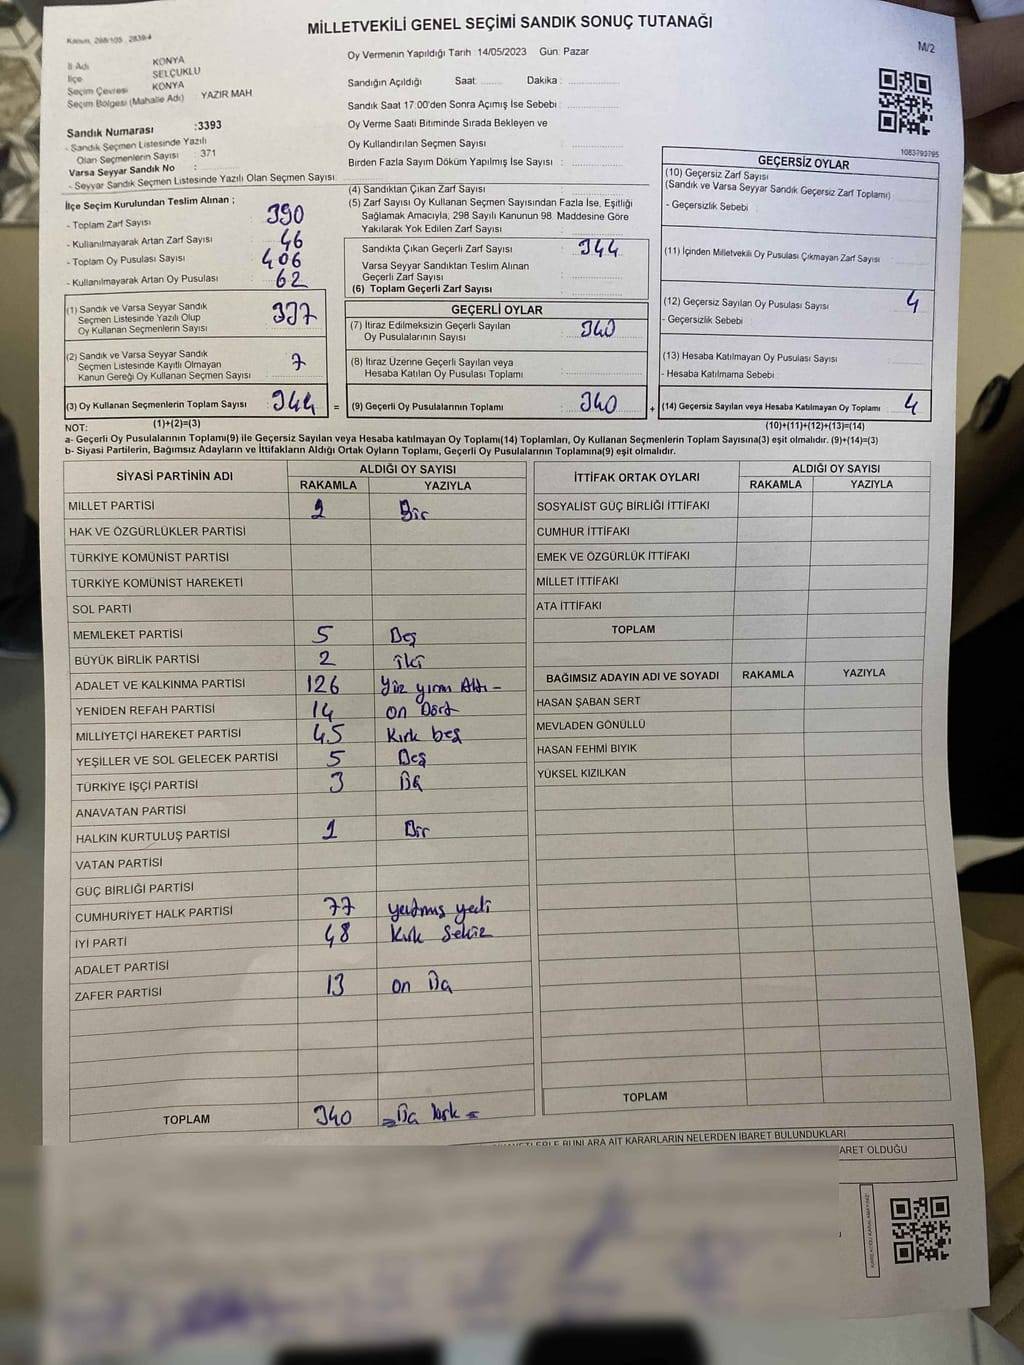 MİLLETVEKİLİ GENEL SEÇİMİ SANDIK SONUÇ TUTANAĞI
M/2
İl Adı KONYA
İlçe SELÇUKLU
Seçim Çevresi KONYA
Seçim Bölgesi (Mahalle Adı) YAZIR MAH
Sandık Numarası :3393
- Sandık Seçmen Listesinde Yazılı
Olan Seçmenlerin Sayısı : 371
Varsa Seyyar Sandık No :
- Seyyar Sandık Seçmen Listesinde Yazılı Olan Seçmen Sayısı:
Oy Vermenin Yapıldığı Tarih 14/05/2023 Gün: Pazar
Sandığın Açıldığı Saat: Dakika :
Sandık Saat 17:00'den Sonra Açımış İse Sebebi :
Oy Verme Saati Bitiminde Sırada Bekleyen ve
Oy Kullandırılan Seçmen Sayısı :
Birden Fazla Sayım Döküm Yapılmış İse Sayısı :
1083793795
İlçe Seçim Kurulundan Teslim Alınan ;
- Toplam Zarf Sayısı : 390
- Kullanılmayarak Artan Zarf Sayısı : 46
- Toplam Oy Pusulası Sayısı : 406
- Kullanılmayarak Artan Oy Pusulası : 62
(1) Sandık ve Varsa Seyyar Sandık
Seçmen Listesinde Yazılı Olup
Oy Kullanan Seçmenlerin Sayısı : 337
(2) Sandık ve Varsa Seyyar Sandık
Seçmen Listesinde Kayıtlı Olmayan
Kanun Gereği Oy Kullanan Seçmen Sayısı : 7
(3) Oy Kullanan Seçmenlerin Toplam Sayısı : 344 =
(1)+(2)=(3)
(4) Sandıktan Çıkan Zarf Sayısı :
(5) Zarf Sayısı Oy Kullanan Seçmen Sayısından Fazla İse, Eşitliği
Sağlamak Amacıyla, 298 Sayılı Kanunun 98. Maddesine Göre
Yakılarak Yok Edilen Zarf Sayısı :
Sandıkta Çıkan Geçerli Zarf Sayısı : 344
Varsa Seyyar Sandıktan Teslim Alınan
Geçerli Zarf Sayısı :
(6) Toplam Geçerli Zarf Sayısı :
GEÇERLİ OYLAR
(7) İtiraz Edilmeksizin Geçerli Sayılan
Oy Pusulalarının Sayısı : 340
(8) İtiraz Üzerine Geçerli Sayılan veya
Hesaba Katılan Oy Pusulası Toplamı :
(9) Geçerli Oy Pusulalarının Toplamı : 340 +
GEÇERSİZ OYLAR
(10) Geçersiz Zarf Sayısı :
(Sandık ve Varsa Seyyar Sandık Geçersiz Zarf Toplamı)
- Geçersizlik Sebebi :
(11) İçinden Milletvekili Oy Pusulası Çıkmayan Zarf Sayısı
(12) Geçersiz Sayılan Oy Pusulası Sayısı : 4
- Geçersizlik Sebebi :
(13) Hesaba Katılmayan Oy Pusulası Sayısı :
- Hesaba Katılmama Sebebi :
(14) Geçersiz Sayılan veya Hesaba Katılmayan Oy Toplamı : 4
(10)+(11)+(12)+(13)=(14)
NOT:
a- Geçerli Oy Pusulalarının Toplamı(9) ile Geçersiz Sayılan veya Hesaba katılmayan Oy Toplamı(14) Toplamları, Oy Kullanan Seçmenlerin Toplam Sayısına(3) eşit olmalıdır. (9)+(14)=(3)
b- Siyasi Partilerin, Bağımsız Adayların ve İttifakların Aldığı Ortak Oyların Toplamı, Geçerli Oy Pusulalarının Toplamına(9) eşit olmalıdır.
SİYASİ PARTİNİN ADI ALDIĞI OY SAYISI
RAKAMLA YAZIYLA
MİLLET PARTİSİ 1 Bir
HAK VE ÖZGÜRLÜKLER PARTİSİ
TÜRKİYE KOMÜNİST PARTİSİ
TÜRKİYE KOMÜNİST HAREKETİ
SOL PARTİ
MEMLEKET PARTİSİ 5 Beş
BÜYÜK BİRLİK PARTİSİ 2 iki
ADALET VE KALKINMA PARTİSİ 126 Yüz yirmi Altı
YENİDEN REFAH PARTİSİ 14 on Dört
MİLLİYETÇİ HAREKET PARTİSİ 45 Kırk beş
YEŞİLLER VE SOL GELECEK PARTİSİ 5 Beş
TÜRKİYE İŞÇİ PARTİSİ 3 Üç
ANAVATAN PARTİSİ
HALKIN KURTULUŞ PARTİSİ 1 Bir
VATAN PARTİSİ
GÜÇ BİRLİĞİ PARTİSİ
CUMHURİYET HALK PARTİSİ 77 yetmiş yedi
İYİ PARTİ 48 Kırk Sekiz
ADALET PARTİSİ
ZAFER PARTİSİ 13 on Üç
TOPLAM 340
İTTİFAK ORTAK OYLARI ALDIĞI OY SAYISI
RAKAMLA YAZIYLA
SOSYALİST GÜÇ BİRLİĞİ İTTİFAKI
CUMHUR İTTİFAKI
EMEK VE ÖZGÜRLÜK İTTİFAKI
MİLLET İTTİFAKI
ATA İTTİFAKI
TOPLAM
BAĞIMSIZ ADAYIN ADI VE SOYADI RAKAMLA YAZIYLA
HASAN ŞABAN SERT
MEVLADEN GÖNÜLLÜ
HASAN FEHMİ BIYIK
YÜKSEL KIZILKAN
TOPLAM
BUNLARA AİT KARARLARIN NELERDEN İBARET BULUNDUKLARI
OLDUĞU